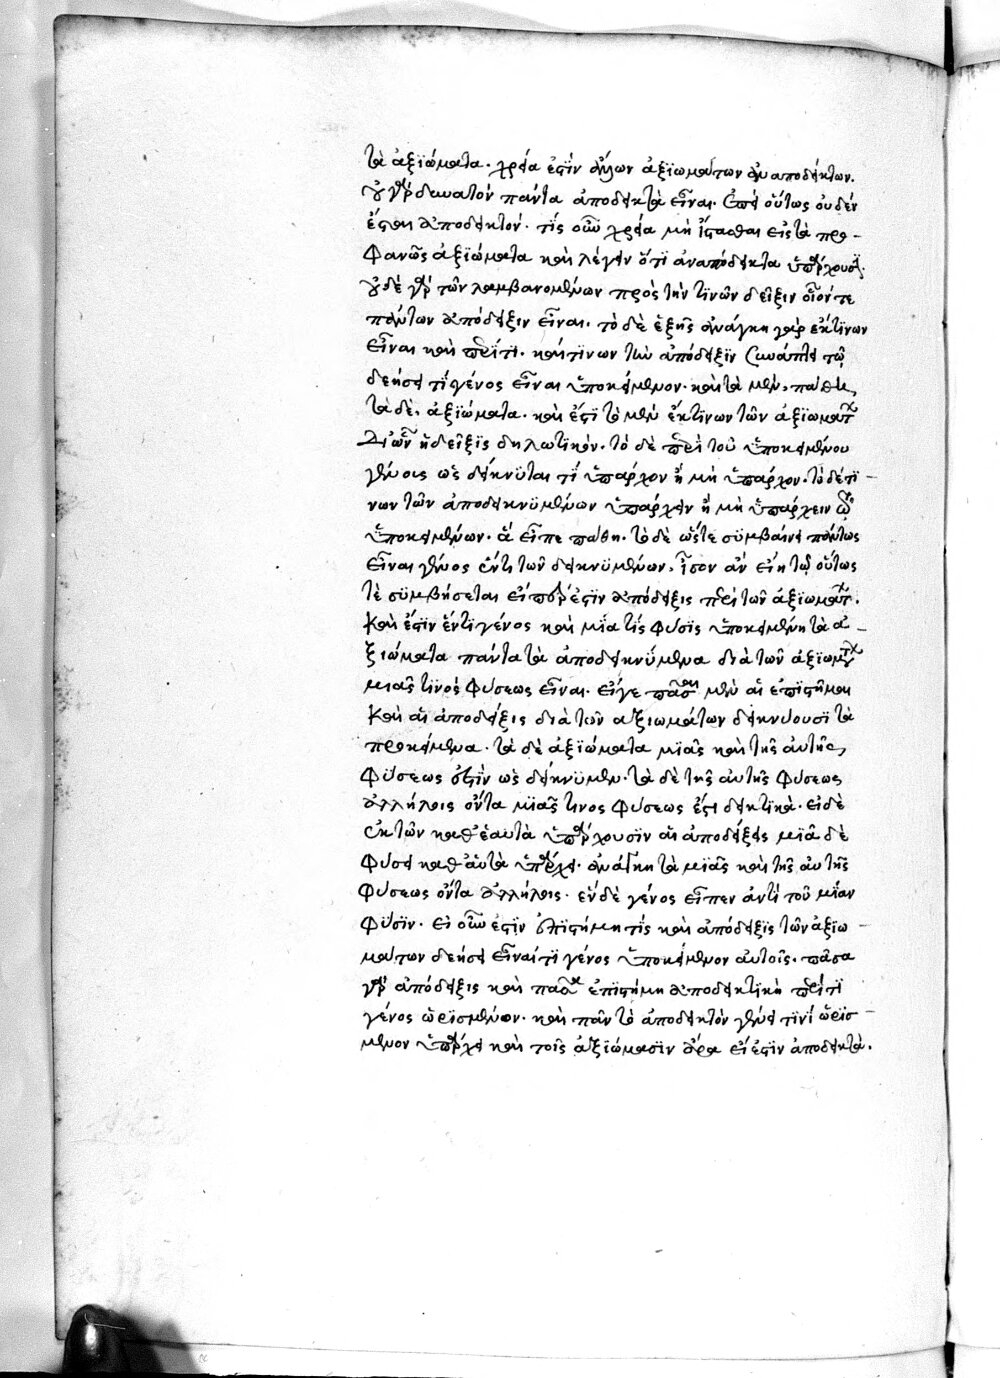 τὰ ἀξϊώματα. χρεία ἐστὶν ἄλλων ἀξϊωμάτων ἀναποδείκτων.
οὐ γὰρ δυνατὸν πάντα ἀποδεικτὰ εἶναι. ἐπεὶ οὕτως οὐδὲν
ἔσται ἀποδεικτόν. τίς οὖν χρεία μὴ ἵστασθαι εἰς τὰ προ-
φανῶς ἀξϊώματα καὶ λέγειν ὅτι ἀναπόδεικτα ὑπάρχουσι.
οὐδὲ γὰρ τῶν λαμβανομένων πρὸς τὴν τινῶν δεῖξιν οἷόν τε
πάντων ἀπόδειξιν εἶναι. τὸ δὲ ἑξῆς ἀνάγκη γὰρ ἔκ τινων
εἶναι καὶ περί τι. καί τινων τὴν ἀπόδειξϊν συνάπτει τῷ
δεήσει τι γένος εἶναι ὑποκείμενον. καὶ τὰ μὲν, πάθη,
τὰ δὲ, ἀξϊώματα. καὶ ἔστι τὸ μὲν ἔκ τινων τῶν ἀξϊωμάτ
δι ὧν ἡ δεῖξις δηλωτικόν. τὸ δὲ περὶ τοῦ ὑποκειμένου
γένους ὡς δείκνϋται τὶ ὑπάρχον ἢ μὴ ὑπάρχον. τὸ δέ τϊ-
νων τῶν ἀποδεικνϋμένων ὑπάρχειν ἢ μὴ ὑπάρχειν τῷ
ὑποκειμένων. ἃ εἶπε πάθη. τὸ δὲ ὥστε συμβαίνει πάντως
εἶναι γένος ἕν τι τῶν δεικνϋμένων, ἴσον ἂν εἴη τῷ οὕτως
τὲ συμβήσεται εἴπερ ἐστὶν ἀπόδειξις περὶ τῶν ἀξϊωμάτ.
καὶ ἔστιν ἕν τι γένος καὶ μία τίς φύσϊς ὑποκειμένη τὰ ἀ-
ξϊώματα πάντα τὰ ἀποδεικνύμενα διὰ τῶν ἀξϊωμάτ
μιᾶς τινὸς φύσεως εἶναι. εἴγε πᾶσαι μὲν αἱ ἐπϊστῆμαι
καὶ αἱ ἀποδείξεις διὰ τῶν ἀξιωμάτων δεικνύουσϊ τὰ
προκείμενα. τὰ δὲ ἀξϊώματα μϊᾶς καὶ τῆς αὐτῆς,
φύσεως ἐστὶν ὡς δείκνϋμεν. τὰ δὲ τῆς αὐτῆς φύσεως
ἀλλήλοις ὄντα μϊᾶς τινος φύσεως ἔστι δεικτϊκὰ. εἰ δὲ
ἐκ τῶν καθ' ἑαυτὰ ὑπάρχουσϊν αἱ ἀποδείξεις μϊᾶ δὲ
φύσει καθ' αὑτὰ ὑπάρχει. ἀνάγκη τὰ μϊᾶς καὶ τῆς αὐτῆς
φύσεως ὄντα ἀλλήλοις. ἓν δὲ γένος εἶπεν ἀντὶ τοῦ μίαν
φύσϊν. εἰ οὖν ἐστϊν ἐπϊστήμη τίς καὶ ἀπόδειξϊς τῶν ἀξϊω-
μάτων δεήσει εἶναί τϊ γένος ὑποκείμενον αὐτοῖς. πᾶσα
γὰρ ἀπόδειξις καὶ πᾶσα ἐπϊστήμη ἀποδεικτϊκὴ περί τϊ
γένος ὡρϊσμένον. καὶ πᾶν τὸ ἀποδεικτὸν γένει τϊνὶ ὡρϊσ-
μένον ὑπάρχει καὶ τοῖς ἀξϊώμασϊν ἄρα εἰ ἐστϊν ἀποδεικτὰ.